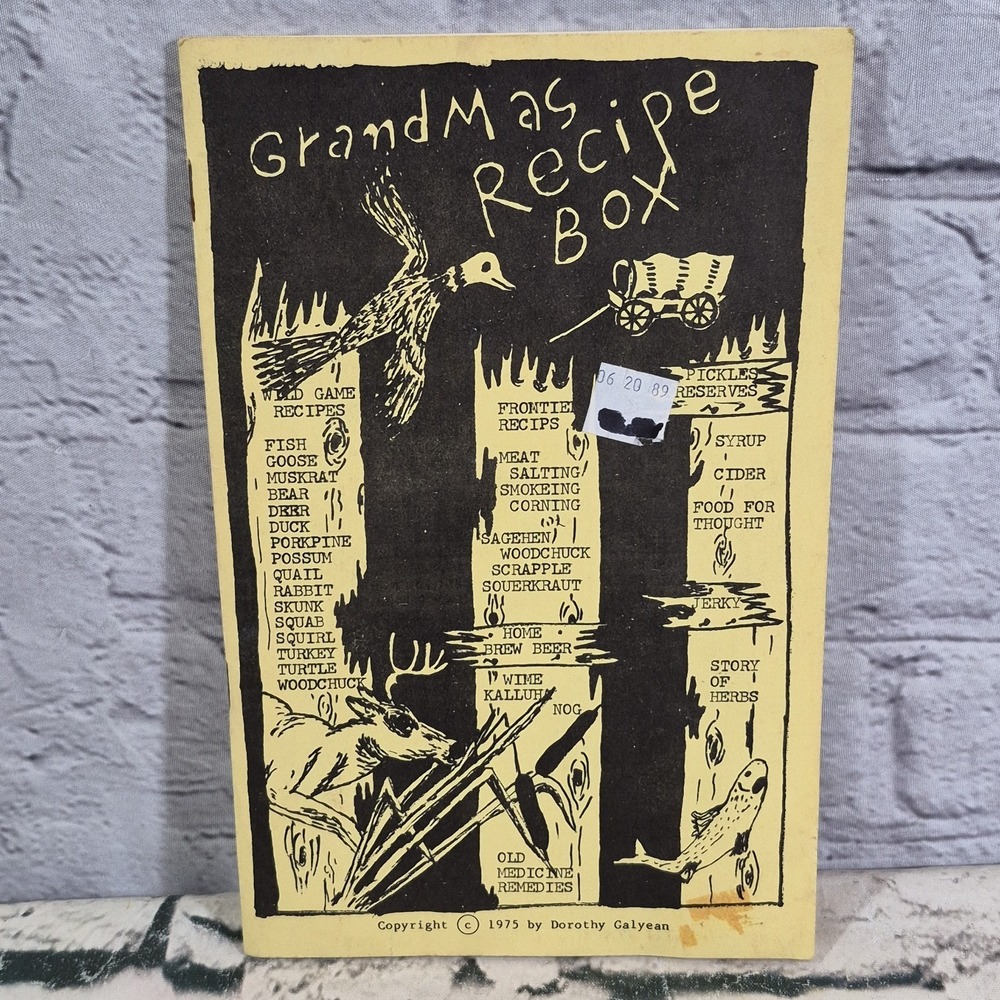 GrandMas
Recipe
Box
WILD GAME
RECIPES
FISH
GOOSE
MUSKRAT
BEAR
DEER
DUCK
PORKPINE
POSSUM
QUAIL
RABBIT
SKUNK
SQUAB
SQUIRL
TURKEY
TURTLE
WOODCHUCK
FRONTIER
RECIPS
MEAT
SALTING
SMOKEING
CORNING
or
SAGEHEN
WOODCHUCK
SCRAPPLE
SOUERKRAUT
HOME
BREW BEER
WIME
KALLUHA
NOG
OLD
MEDICINE
REMEDIES
06 20 89
PICKLES
RESERVES
SYRUP
CIDER
FOOD FOR
THOUGHT
JERKY
STORY
OF
HERBS
Copyright © 1975 by Dorothy Galyean